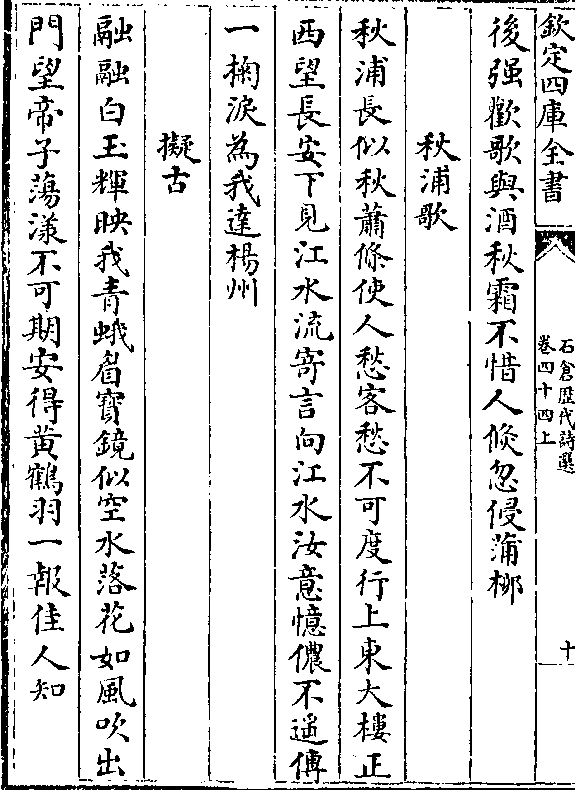 欽定四庫全書
石倉歴代詩選
卷四十四上
十
後强歡歌與酒秋霜不惜人倐忽侵蒲栁
秋浦歌
秋浦長似秋蕭條使人愁客愁不可度行上東大樓正
西望長安下見江水流寄言向江水汝意憶儂不遥傳
一掬淚為我達楊州
擬古
融融白玉輝映我青蛾眉寳鏡似空水落花如風吹出
門望帝子蕩漾不可期安得黄鶴羽一報佳人知